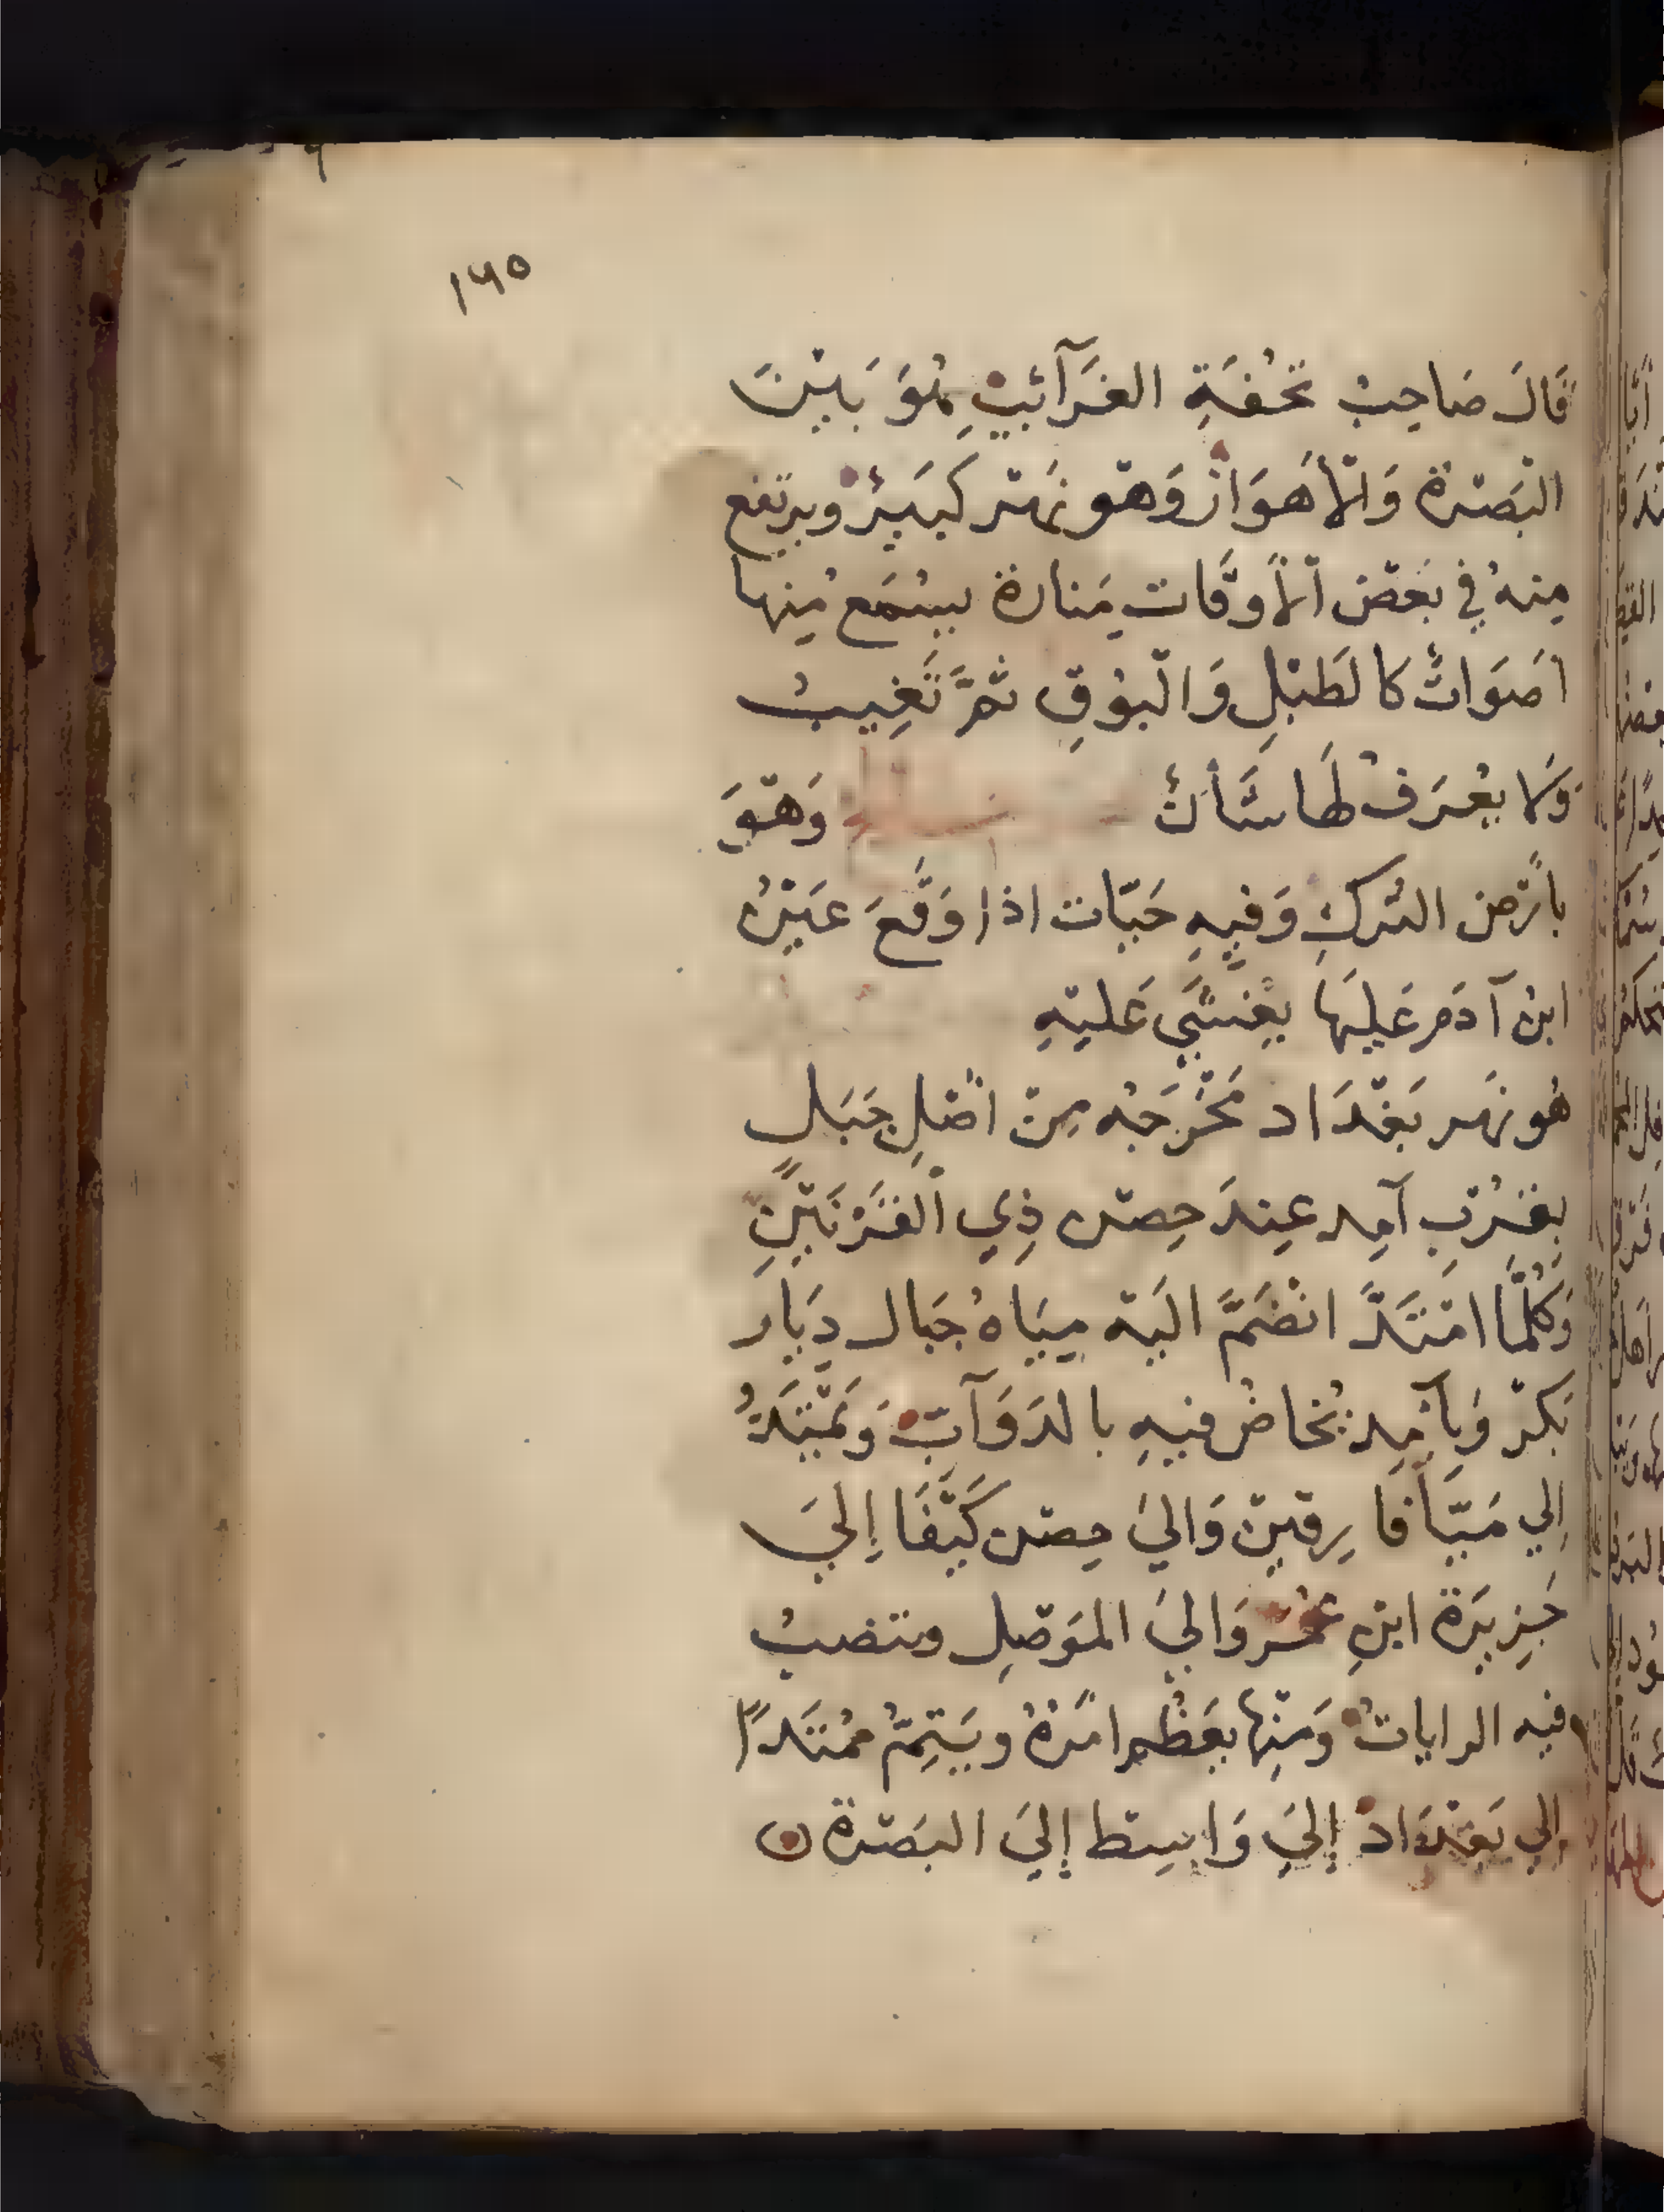 ١٦٥
قَالَ صَاحِبُ تُحْفَةِ الغَرَآئِبِ هُوَ بَيْنَ
البَصْرَة وَالْأَهْوَاز وَهْو نَهْر كَبِيرٌ ويرتفع
مِنهُ فِي بَعْض الْأَوْقَات مَنارة يُسْمَع مِنها
اصَوَاتٌ كالطَبْلِ وَالْبُوْقِ ثُمَّ تَغِيبُ
وَلا يُعْرَفُ لهَا شَأنٌ وَهْوَ
بأَرْض التُركِ وَفيهِ حَيّات اذا وَقَعَ عَيْنُ
ابنُ آدَم عَليهَا يُغْشَي عَليْهِ
هُو نَهر بَغْدَاد مَخْرَجُه مِنْ اصْلِ جَبَل
بِقُرْبِ آمِد عِندَ حِصْن ذِي الْقَرْنَيْنِ
وَكُلَّمَا امْتَدَّ انْضَمَّ اليَه مِيَاهُ جِبَال دِيَار
بَكْر وَبِآمِد يُخاضُ فيهِ بالدَوَآبّ وَيَمْتَدُّ
إِلي مَيّافارِقينْ وَاليَ حِصْن كَيْفَا إِليَ
جَزِيرَة ابْنِ عُمَر وَاليَ المَوْصِل وينصبُ
فيه الزاباتُ وَمِنْها يَعْظُم امْرُهُ ويَسْتَمِرُّ مُمْتَدًا
إلي بَغْدَاد إليَ وَاسِط إليَ البَصْرة